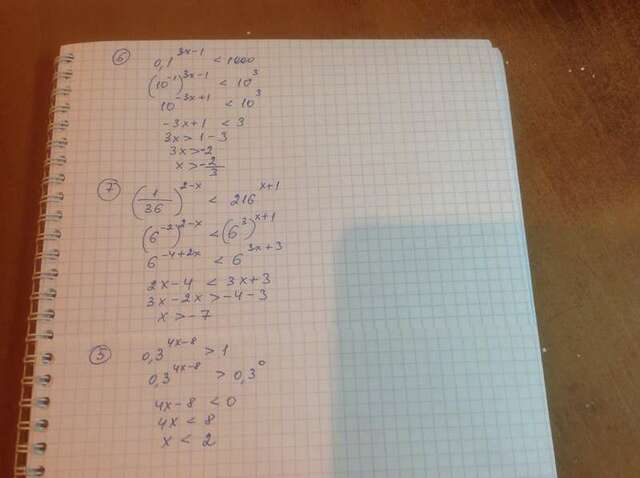 6 0,1^{3x-1} < 1000
(10^{-1})^{3x-1} < 10^{3}
10^{-3x+1} < 10^{3}
-3x+1 < 3
3x > 1-3
3x > -2
x > -\frac{2}{3}
7 (\frac{1}{36})^{2-x} < 216^{x+1}
(6^{-2})^{2-x} < (6^{3})^{x+1}
6^{-4+2x} < 6^{3x+3}
2x-4 < 3x+3
3x-2x > -4-3
x > -7
5 0,3^{4x-8} > 1
0,3^{4x-8} > 0,3^{0}
4x-8 < 0
4x < 8
x < 2